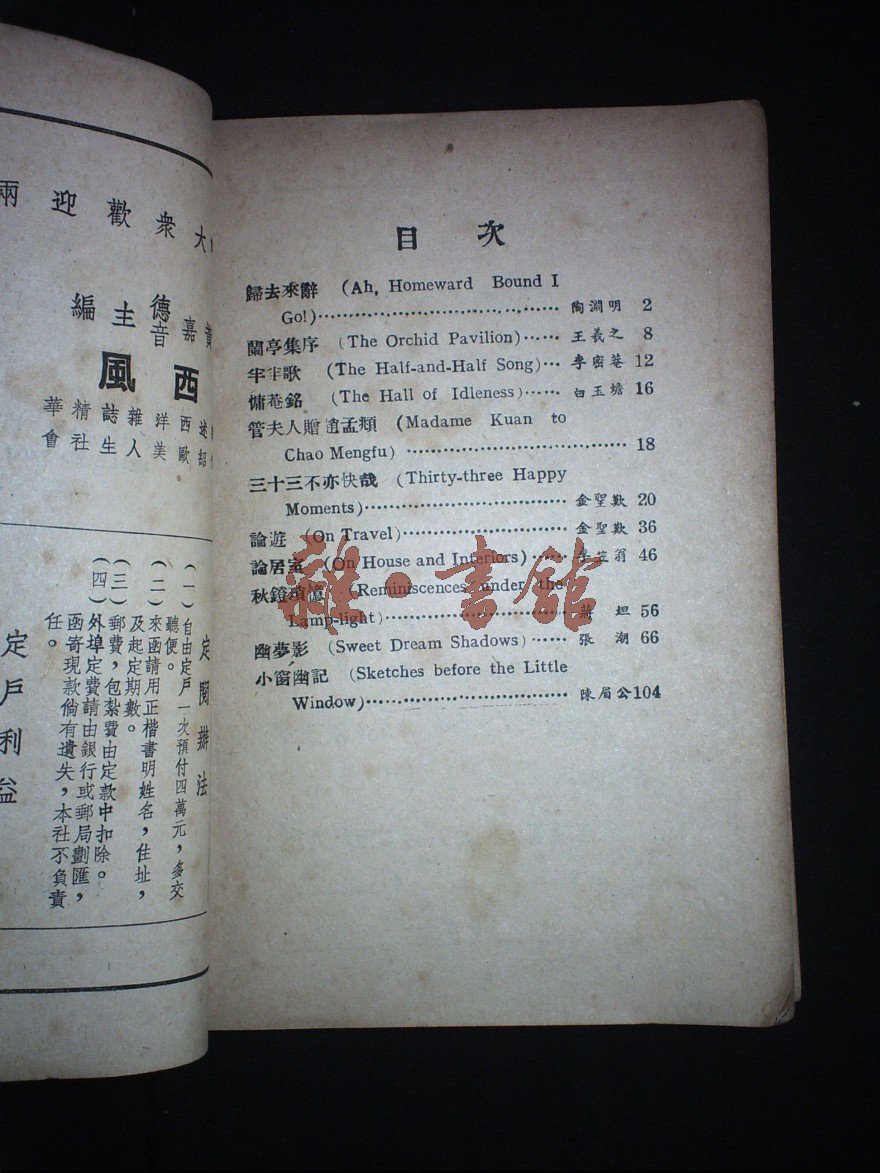 兩
迎
歡
衆
大
編
主
德音
嘉
黃
西風
述紹
西歐
洋美
雜人
誌生
精社
華會
定閱辦法
(一)自由定戶一次預付四萬元,多交
聽便。
(二)來函請用正楷書明姓名,住址,
及起定期數。
(三)郵費,包紮費由定款中扣除。
(四)外埠定費請由銀行或郵局劃匯,
函寄現款倘有遺失,本社不負責
任。
定戶利益
目次
歸去來辭 (Ah, Homeward Bound I
Go!)⋯⋯陶淵明 2
蘭亭集序 (The Orchid Pavilion)⋯⋯王羲之 8
半半歌 (The Half-and-Half Song)⋯李密菴 12
慵菴銘 (The Hall of Idleness)⋯⋯白玉蟾 16
管夫人贈趙孟頫 (Madame Kuan to
Chao Mengfu)⋯⋯18
三十三不亦快哉 (Thirty-three Happy
Moments)⋯⋯金聖歎 20
論遊 (On Travel)⋯⋯金聖歎 36
論居室 (On House and Interiors)⋯⋯李笠翁 46
秋鐙瑣憶 (Reminiscences under the
Lamp-light)⋯⋯蔣坦 56
幽夢影 (Sweet Dream Shadows)⋯⋯張潮 66
小窗幽記 (Sketches before the Little
Window)⋯⋯陳眉公 104
雜·書館